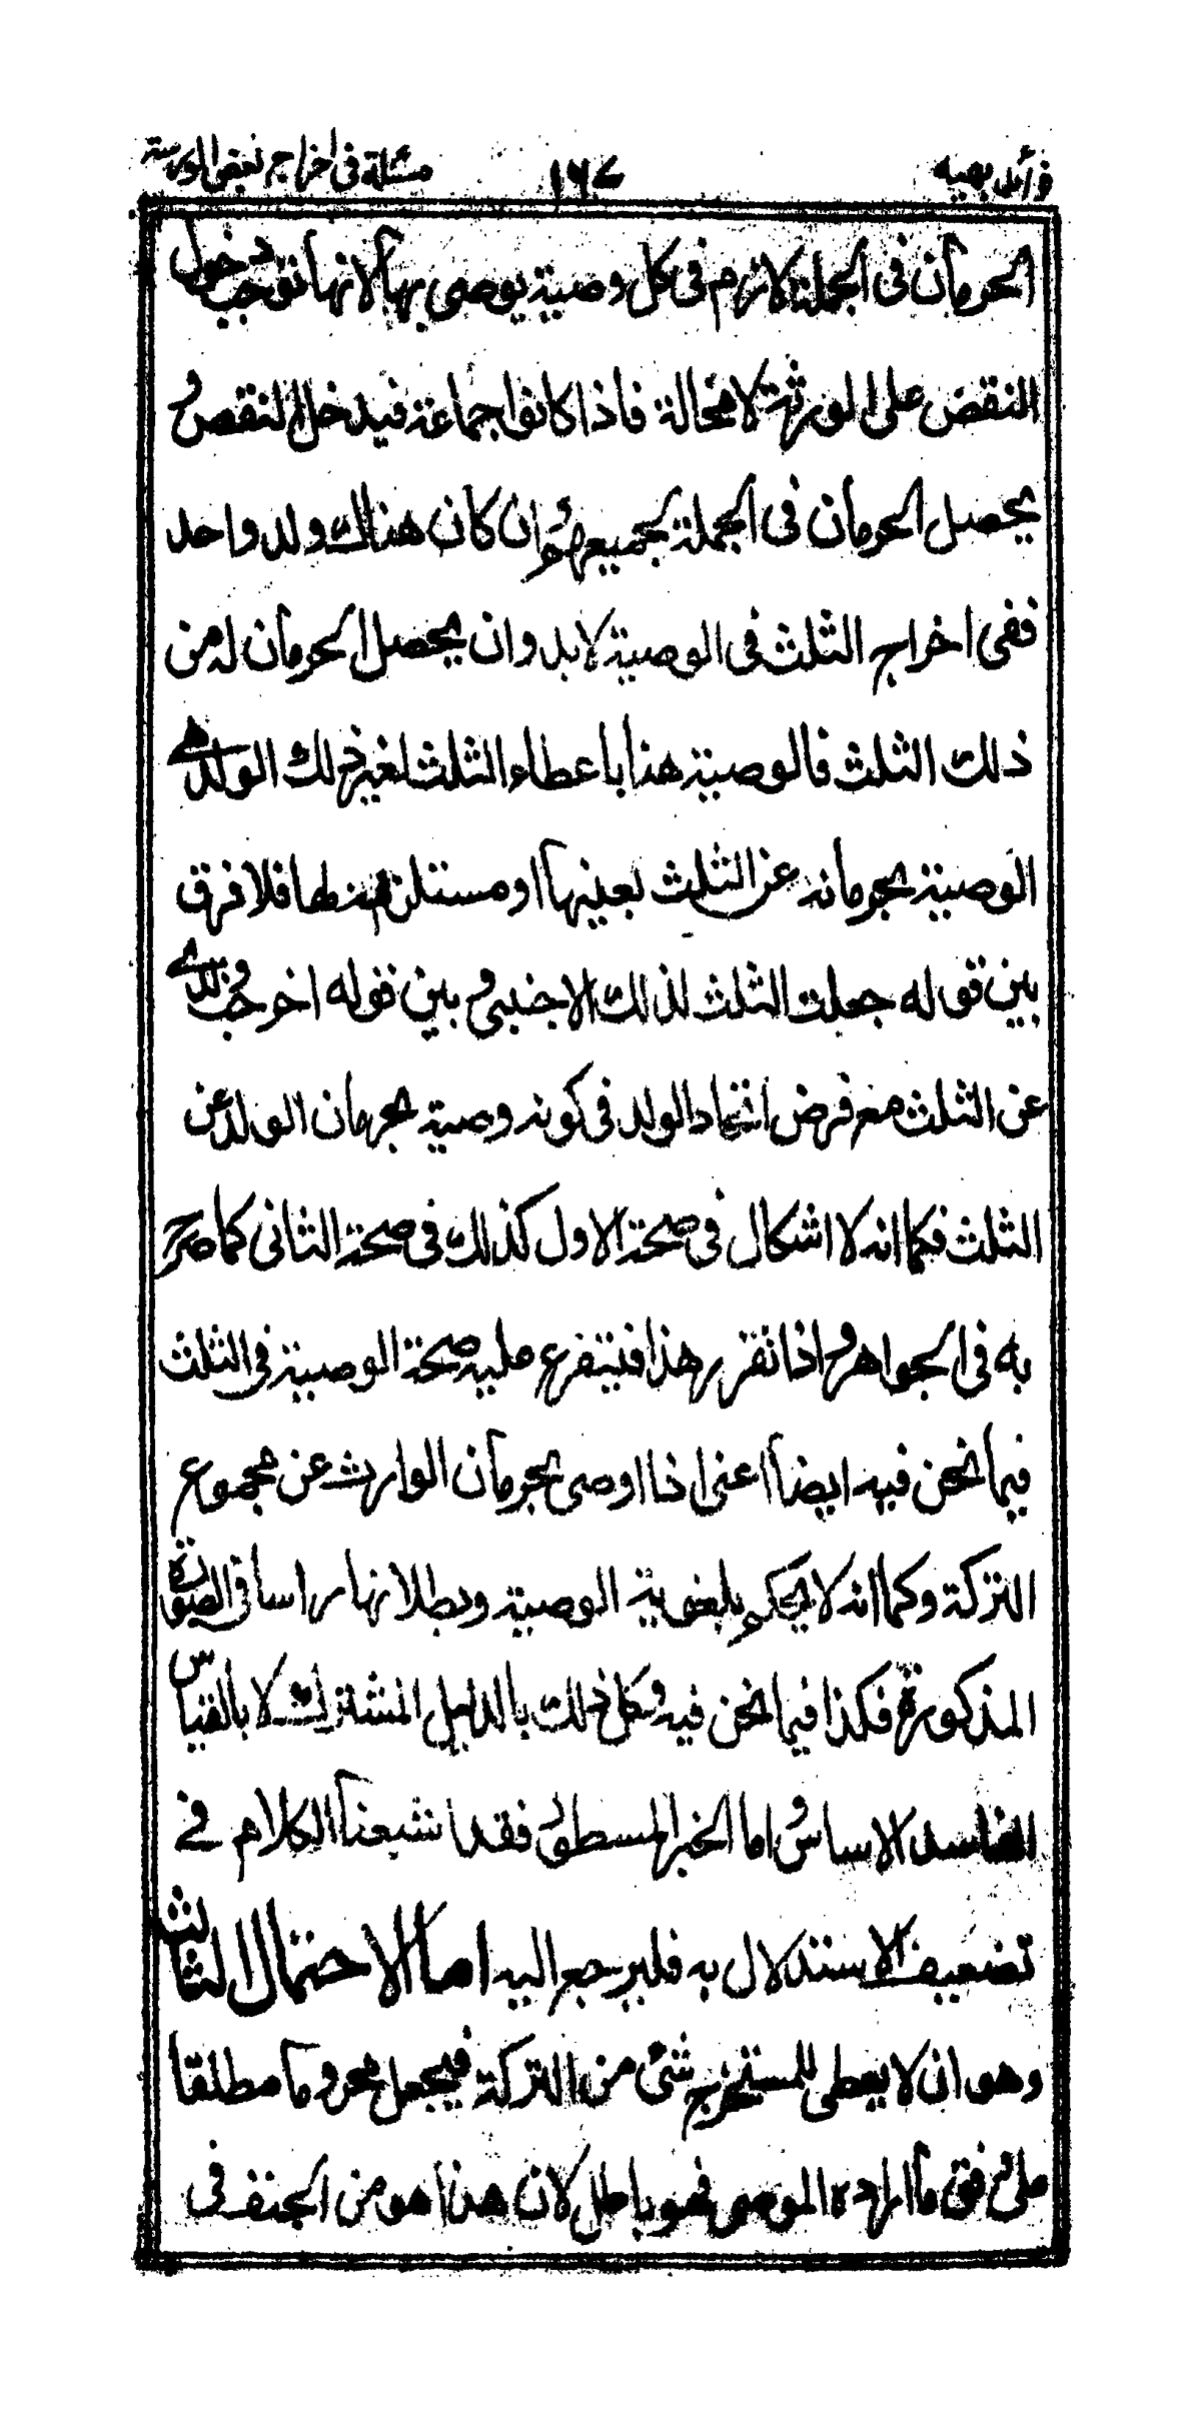 فرائد بهيه ١٦٧ مسئلة في اخراج بعض الورثة
الحرمان فى الجملة لازم فى كل وصية يوصى بها لانها توجب دخول
النقض على الورثة لا محالة فاذا كانوا جماعة فيدخل النقص و
يحصل الحرمان فى الجملة لجميعهم وان كان هناك ولد واحد
ففى اخراج الثلث فى الوصية لابد وان يحصل الحرمان له من
ذلك الثلث فالوصية هذا باعطاء الثلث لغير ذلك الولد هى
الوصية بحرمانه عن الثلث بعينها او مستلزمة لها فلا فرق
بين قوله جعلت الثلث لذلك الاجنبى و بين قوله اخرجت ولدى
عن الثلث مع فرض اتحاد الولد فى كونه وصية بحرمان الولد عن
الثلث فكما انه لا اشكال فى صحة الاول كذلك فى صحة الثانى كما صرح
به فى الجواهر و اذا تقرر هذا فيتفرع عليه صحة الوصية فى الثلث
فيما نحن فيه ايضا اعنى اذا اوصى بحرمان الوارث عن مجموع
التركة وكما انه لا يحكم بلغوية الوصية وبطلانها راسا فى الصورة
المذكورة فكذا فيما نحن فيه وكل ذلك بالدليل المشترك لا بالقياس
الفاسد الاساس و اما الخبر المسطور فقد اشبعنا الكلام فے
تضعيف الاستدلال به فليرجع اليه اما الاحتمال الثالث
وهو ان لا يعطى للمستخرج شئ من التركة فيجعل محروما مطلقا
على وفق ما اراده الموصى فهو باطل لان هذا هو من الجنف فى